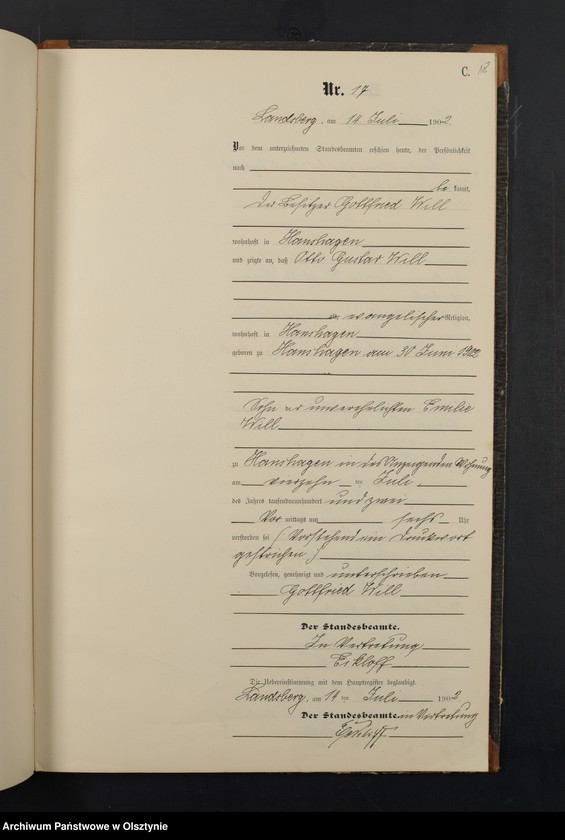 C. 18
Nr. 17
Landsberg, am 14 Juli 1902.
Vor dem unterzeichneten Standesbeamten erschien heute, der Persönlichkeit
nach
be kannt,
Der Besitzer Gottfried Will
wohnhaft in Hanshagen
und zeigte an, daß Otto Gustav Will
evangelischer Religion,
wohnhaft in Hanshagen
geboren zu Hanshagen am 30 Juni 1902
Sohn der unverehelichten Emilie
Will
zu Hanshagen in des Anzeigenden Wohnung
am vierzehn ten Juli
des Jahres tausendneunhundert und zwei
Vor mittags um sechs Uhr
verstorben sei (Vorstehend ein Druckwort
gestrichen)
Vorgelesen, genehmigt und unterschrieben
Gottfried Will
Der Standesbeamte.
In Vertretung
Die Uebereinstimmung mit dem Hauptregister beglaubigt.
Landsberg, am 14 ten Juli 1902
Der Standesbeamte. in Vertretung
Archiwum Państwowe w Olsztynie